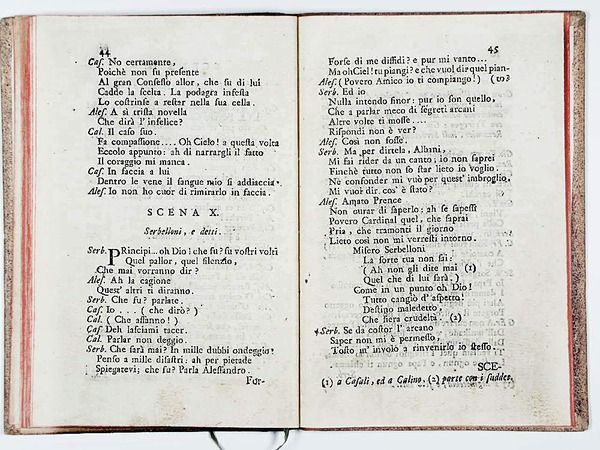 44
Cas. No certamente,
Poichè non fu presente
Al gran Consesso allor, che su di lui
Cadde la scelta. La podagra infesta
Lo costrinse a restar nella sua cella.
Ales. A sì trista novella
Che dirà l' infelice?
Cal. Il caso suo.
Fa compassione.... Oh Cielo! a questa volta
Eccolo appunto: ah di narrargli il fatto
Il coraggio mi manca.
Cas. In faccia a lui
Dentro le vene il sangue mio si addiaccia.
Ales. Io non ho cuor di rimirarlo in faccia.
SCENA X.
Serbelloni, e detti.
Serb. Principi.. oh Dio! che fu? su vostri volti
Quel pallor, quel silenzio,
Che mai vorranno dir?
Ales. Ah la cagione
Quest' altri ti diranno.
Serb. Che fu? parlate.
Cas. Io . . . ( che dirò? )
Cal. ( Che affanno! )
Cas. Deh lasciami tacer.
Cal. Parlar non deggio.
Serb. Che sarà mai? In mille dubbi ondeggio!
Penso a mille disastri: ah per pietade
Spiegatevi; che fu? Parla Alessandro.
For-
45
Forse di me diffidi? e pur mi vanto...
Ma oh Ciel! tu piangi? e che vuol dir quel pian-
Ales. ( Povero Amico io ti compiango! ) (to?
Serb. Ed io
Nulla intendo finor: pur io son quello,
Che a parlar meco di segreti arcani
Altre volte ti mosse....
Rispondi non è ver?
Ales. Così non fosse.
Serb. Ma per dirtela, Albani,
Mi fai rider da un canto; io non saprei
Finchè tutto non so star lieto io voglio.
Ne confonder mi vuò per quest' imbroglio.
Mi vuoi dir cos' è stato?
Ales. Amato Prence
Non curar di saperlo: ah se sapessi
Povero Cardinal quel, che saprai
Pria, che tramonti il giorno
Lieto così non mi verresti intorno.
Misero Serbelloni
La sorte tua non sai:
( Ah non gli dite mai (1)
Quel che di lui sarà. )
Come in un punto oh Dio!
Tutto cangiò d' aspetto!
Destino maledetto,
Che fiera crudeltà. (2)
Serb. Se da costor l' arcano
Saper non mi è permesso,
Tosto m' involo a rinvenirlo io stesso.
SCE-
(1) a Casali, ed a Calino. (2) parte con i suddet.